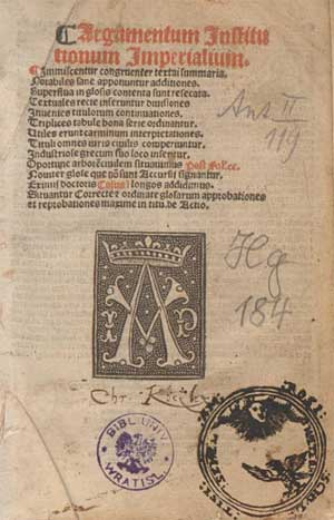 Argumentum Institu
tionum Imperialium.
Immiscentur congruenter textui summaria.
Notabiles sane apponuntur additiones.
Superflua in glosis contenta sunt resecata.
Textuales recte inseruntur divisiones
Invenies titulorum continuationes.
Triplices tabule bona serie ordinantur.
Utiles erunt carminum interpretationes.
Tituli omnes iuris civilis comperiuntur.
Industriose grecum suo loco inseritur.
Oportune arborē eidem situavimus Post Fol. cc.
Noviter glose que nō sunt Accursii signantur.
Eximii doctoris longos addidimus.
Situantur Correcte & ordinate glosarum approbationes
et reprobationes maxime in titu. de Actio.
Ant II
119
Hg
184
Chr.
BIBL. UNIV.
WRATISL.